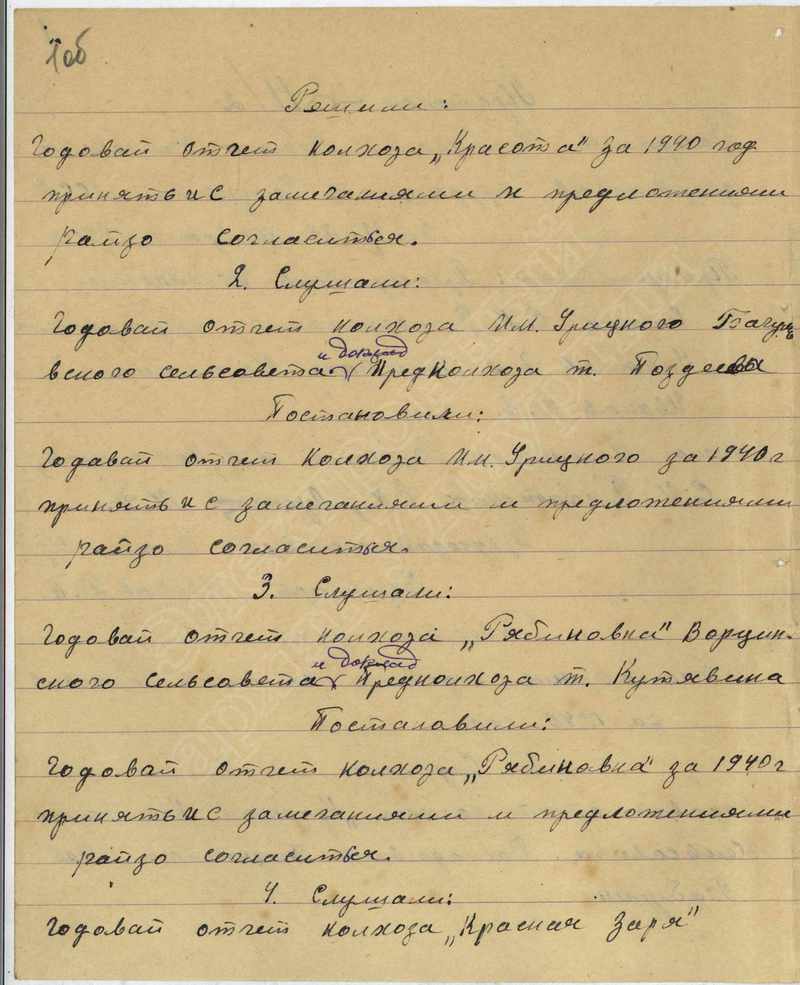 Решили:
Годовай отчет колхоза „Красота" за 1940 год
принять и с замечаниями и предложениями
райзо согласиться.
2. Слушали:
Годовай отчет колхоза им. Урицкого
и доклад
вского сельсовета Предколхоза т. Поздеевы
Постановили:
Годавай отчет колхоза им. Урицкого за 1940 г
принять и с замечаниями и предложениями
райзо согласиться.
3. Слушали:
Годовай отчет колхоза „Рябиновка" Ворцин-
и доклад
ского сельсовета Предколхоза т. Кутявина
Постановили:
Годовай отчет колхоза „Рябиновка" за 1940 г
принять и с замечаниями и предложениями
райзо согласиться.
4. Слушали:
Годовай отчет колхоза „Красная Заря"